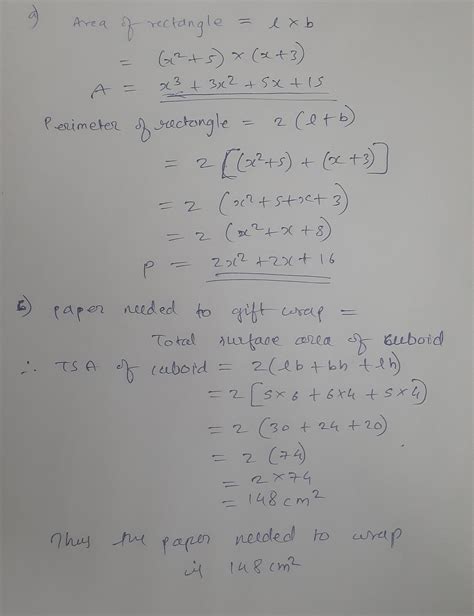 a) Area of rectangle = l x b
= (x²+5) x (x+3)
A = x³ + 3x² + 5x + 15
Perimeter of rectangle = 2 (l+b)
= 2 [(x²+5) + (x+3)]
= 2 (x²+5+x+3)
= 2 (x²+x+8)
P = 2x²+2x+16
b) paper needed to gift wrap =
Total surface area of cuboid
∴ TSA of cuboid = 2(lb+bh+lh)
= 2 [5x6 + 6x4 + 5x4]
= 2 (30 + 24 + 20)
= 2 (74)
= 2 x 74
= 148 cm²
Thus the paper needed to wrap
is 148 cm²